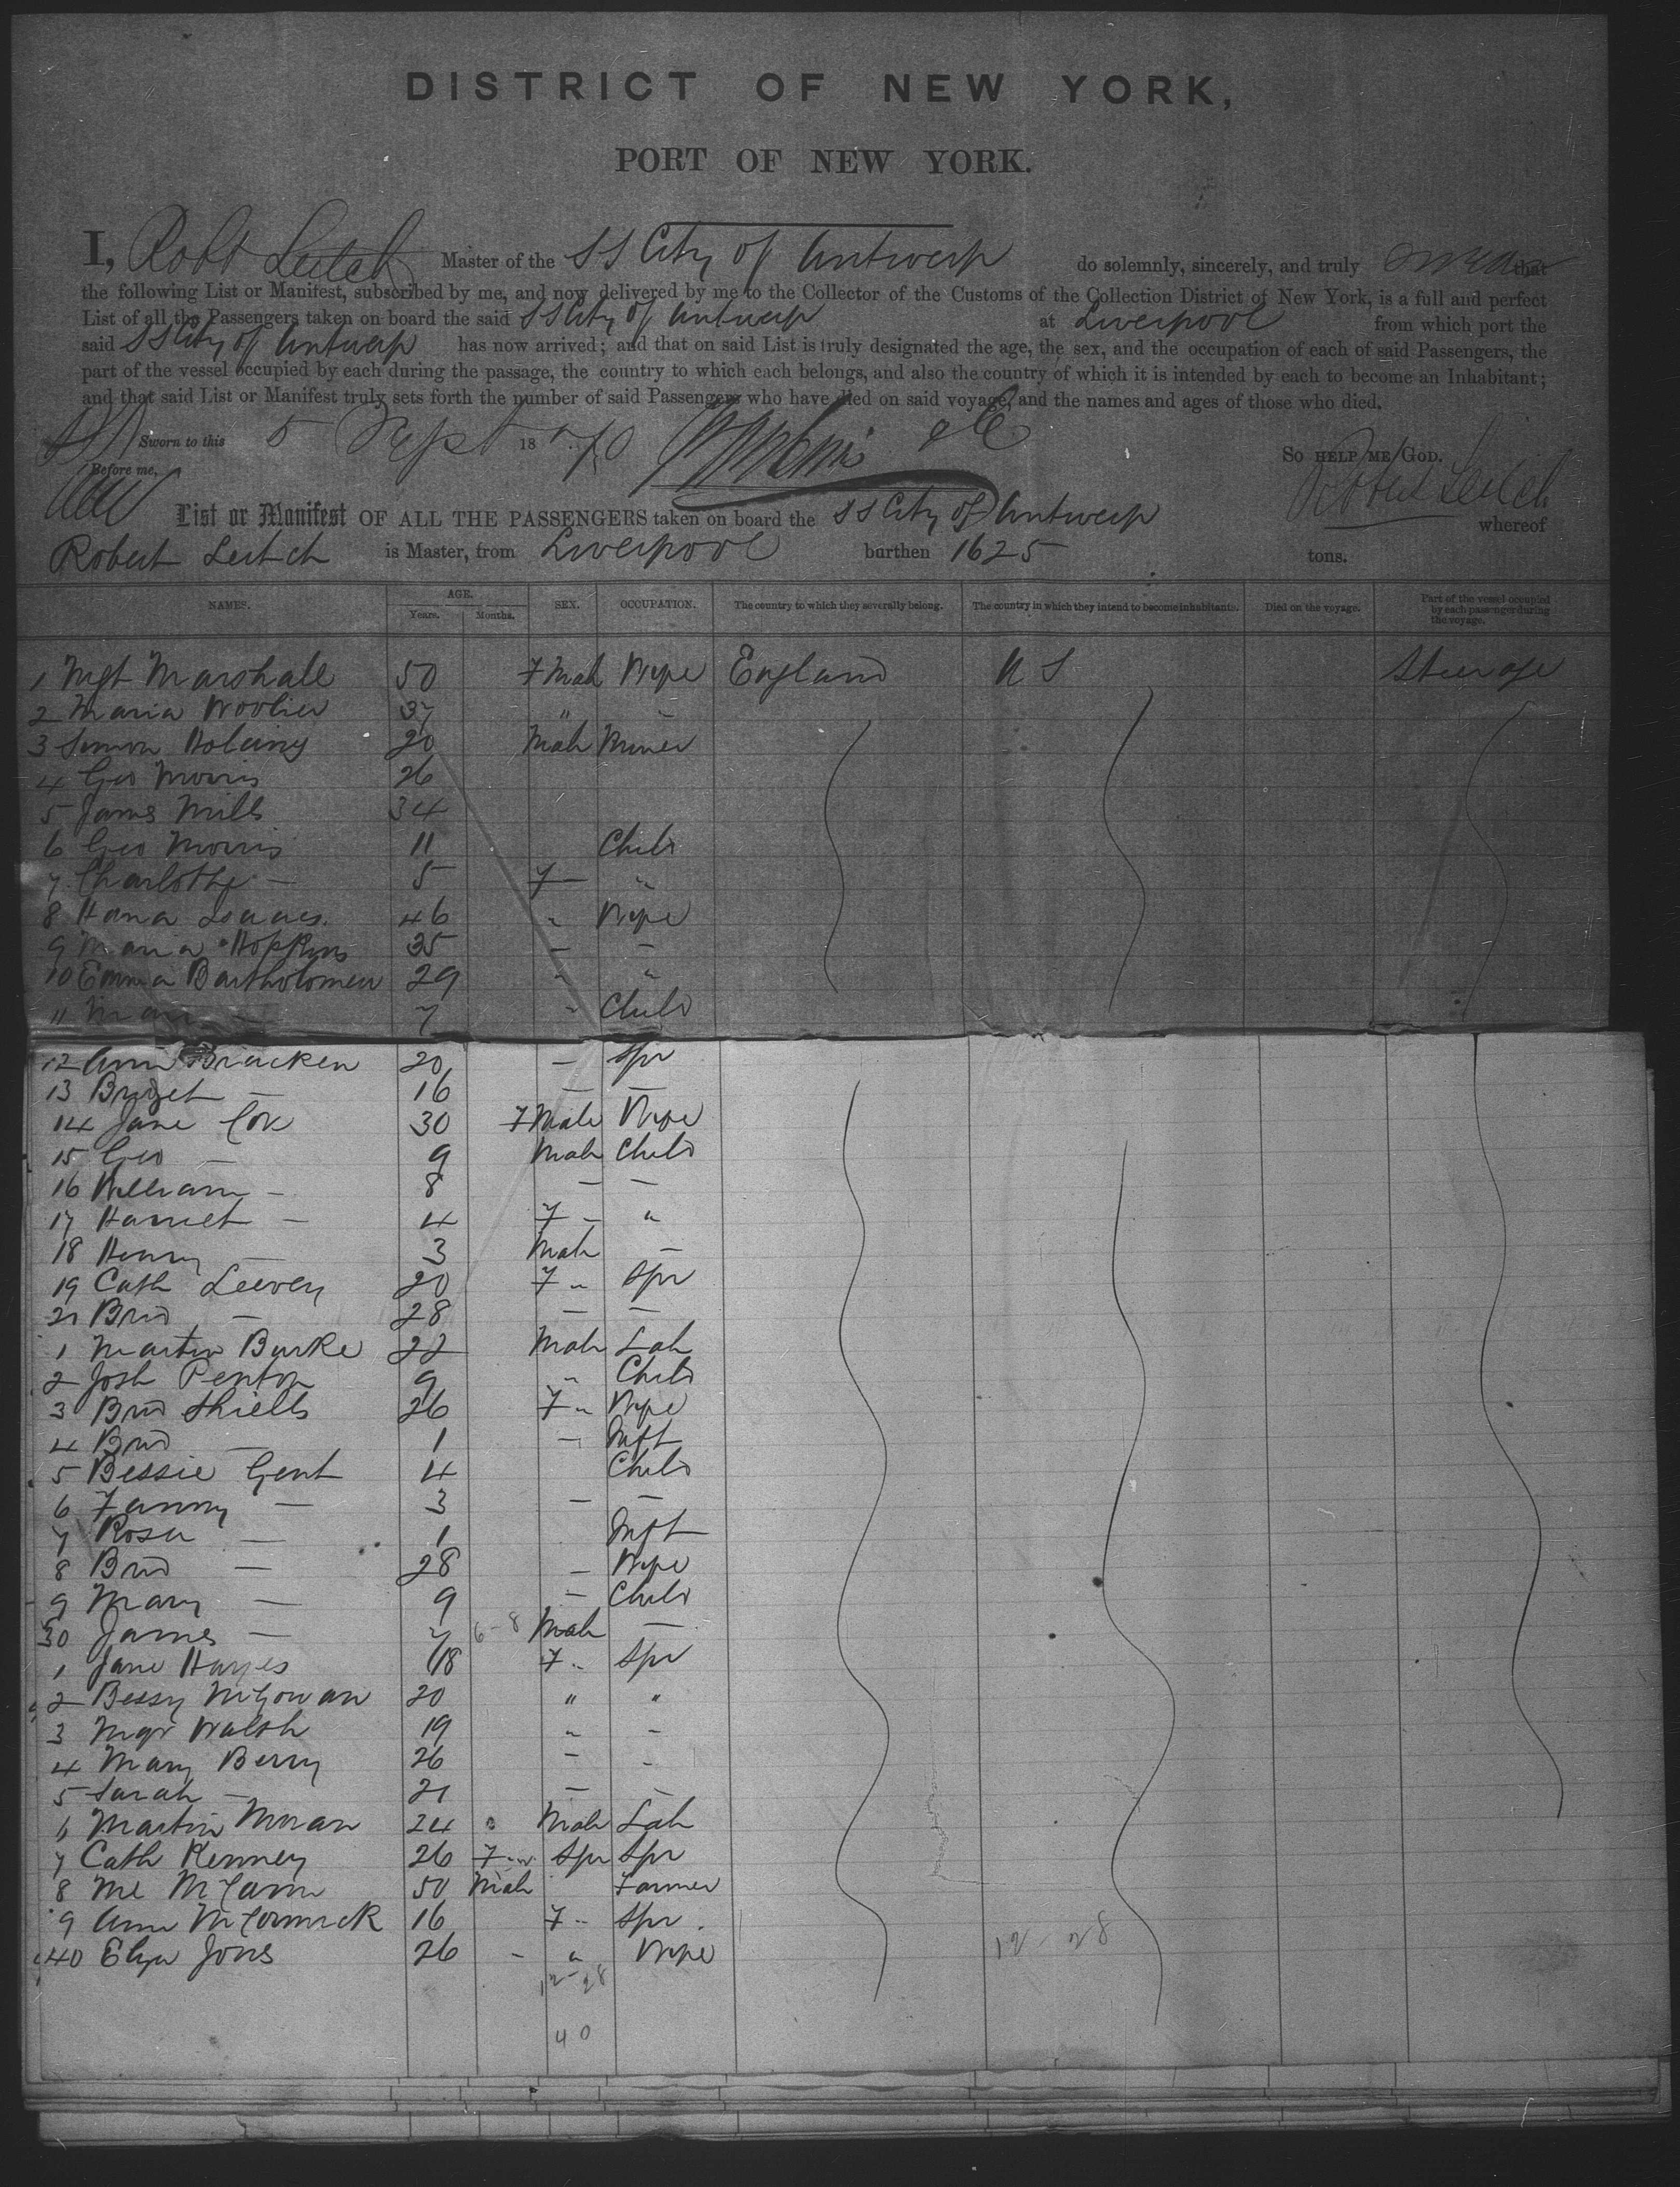 DISTRICT OF NEW YORK,
PORT OF NEW YORK.
I, Robt Leitch Master of the SS City of Antwerp do solemnly, sincerely, and truly swear that
the following List or Manifest, subscribed by me, and now delivered by me to the Collector of the Customs of the Collection District of New York, is a full and perfect
List of all the Passengers taken on board the said SS City of Antwerp at Liverpool from which port the
said SS City of Antwerp has now arrived; and that on said List is truly designated the age, the sex, and the occupation of each of said Passengers, the
part of the vessel occupied by each during the passage, the country to which each belongs, and also the country of which it is intended by each to become an Inhabitant;
and that said List or Manifest truly sets forth the number of said Passengers who have died on said voyage, and the names and ages of those who died.
Sworn to this 5 Sept 1870
So HELP ME GOD.
Before me,
Robert Leitch
List or Manifest OF ALL THE PASSENGERS taken on board the SS City of Antwerp whereof
Robert Leitch is Master, from Liverpool burthen 1625 tons.
NAMES. AGE. Years. Months. SEX. OCCUPATION. The country to which they severally belong. The country in which they intend to become inhabitants. Died on the voyage. Part of the vessel occupied by each passenger during the voyage.
1 Mgt Marshall 50 F Male Wife England U S Steerage
2 Maria 37 " -
3 Simon 20 Male Miner
4 Geo Morris 26
5 James Mills 34
6 Geo Morris 11 Child
7 Charlotte - 5 F - "
8 Hana Isaacs 46 " Wife
9 Maria Hopkins 35 - -
10 Emma Bartholomew 29 " "
11 Mary 7 " Child
12 Ann Bracken 20 - Spr
13 Bridget - 16 - -
14 Jane Cox 30 F Male Wife
15 Geo - 9 Male Child
16 William - 8 - -
17 Harriet - 4 F - "
18 Henry - 3 Male -
19 Cath 20 F " Spr
20 Brid - 28 - -
1 Martin Burke 22 Male Lab
2 Josh Penton 9 " Child
3 Brid Shiells 26 F " Wife
4 Brid - 1 - Inft
5 Bessie Gent 4 Child
6 Fanny - 3 - -
7 Rosa - 1 Inft
8 Brid - 28 - Wife
9 Mary - 9 - Child
30 James - 7 6-8 Male -
1 Jane Hayes 18 F " Spr
2 Bessy McGowan 20 " "
3 Mgt Walsh 19 " -
4 Mary Berry 26 - -
5 Sarah - 21 - -
6 Martin Moran 24 Male Lab
7 Cath Kenney 26 F " Spr Spr
8 Ml McCann 50 Male Farmer
9 Ann McCormack 16 F " Spr
40 Eliza Jones 26 - " Wife
12-28 12-28
40